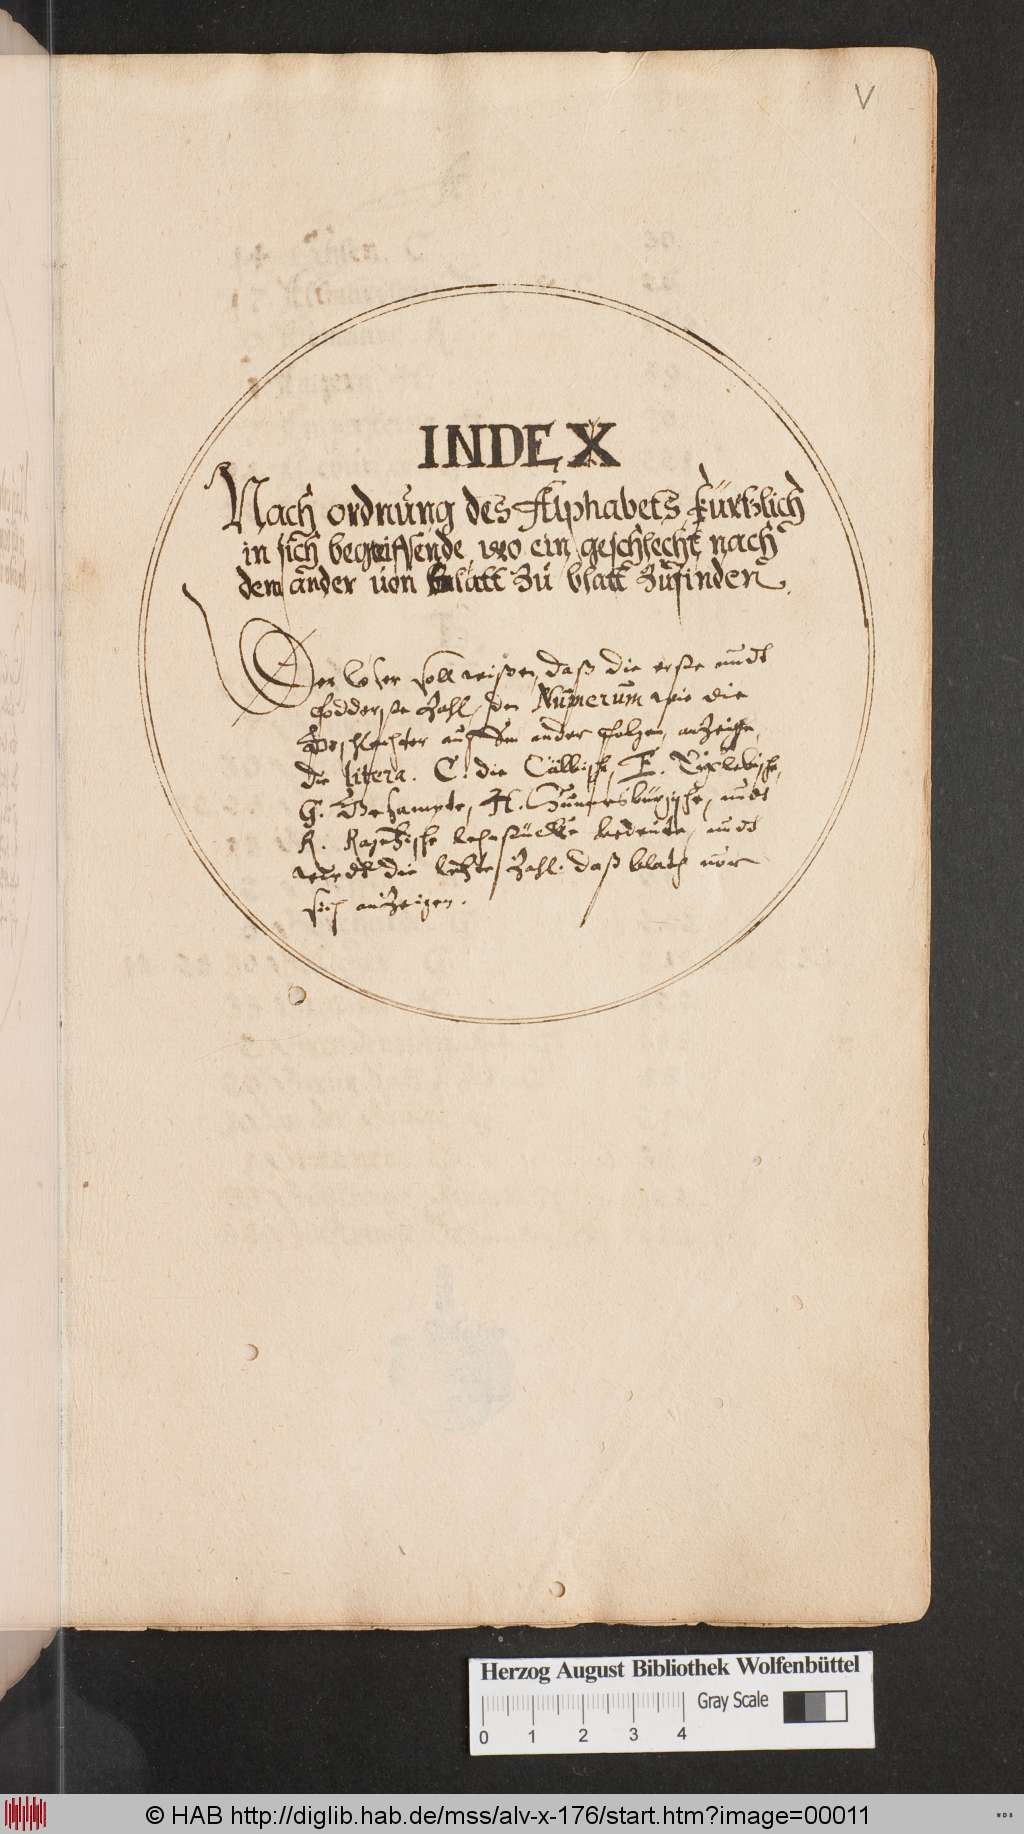 V
INDEX
Nach ordnüng des Alphabets kürtzlich
in sich begreiffende, wo ein geschlecht nach
dem ander von blatt zü blatt züfinden.
Der leser soll wißen, daß die erste undt
fodderste Zahl, den Nümerum wie die
Geschlechter auf den ander folgen, anzeige,
die litera. C. die Cällische, E.
G. Gesampte, H. undt
R. lehnstücke bedeute, undt
die letzte Zahl. daß blath
sich anzeigen.
Herzog August Bibliothek Wolfenbüttel
Gray Scale
0 1 2 3 4
© HAB http://diglib.hab.de/mss/alv-x-176/start.htm?image=00011